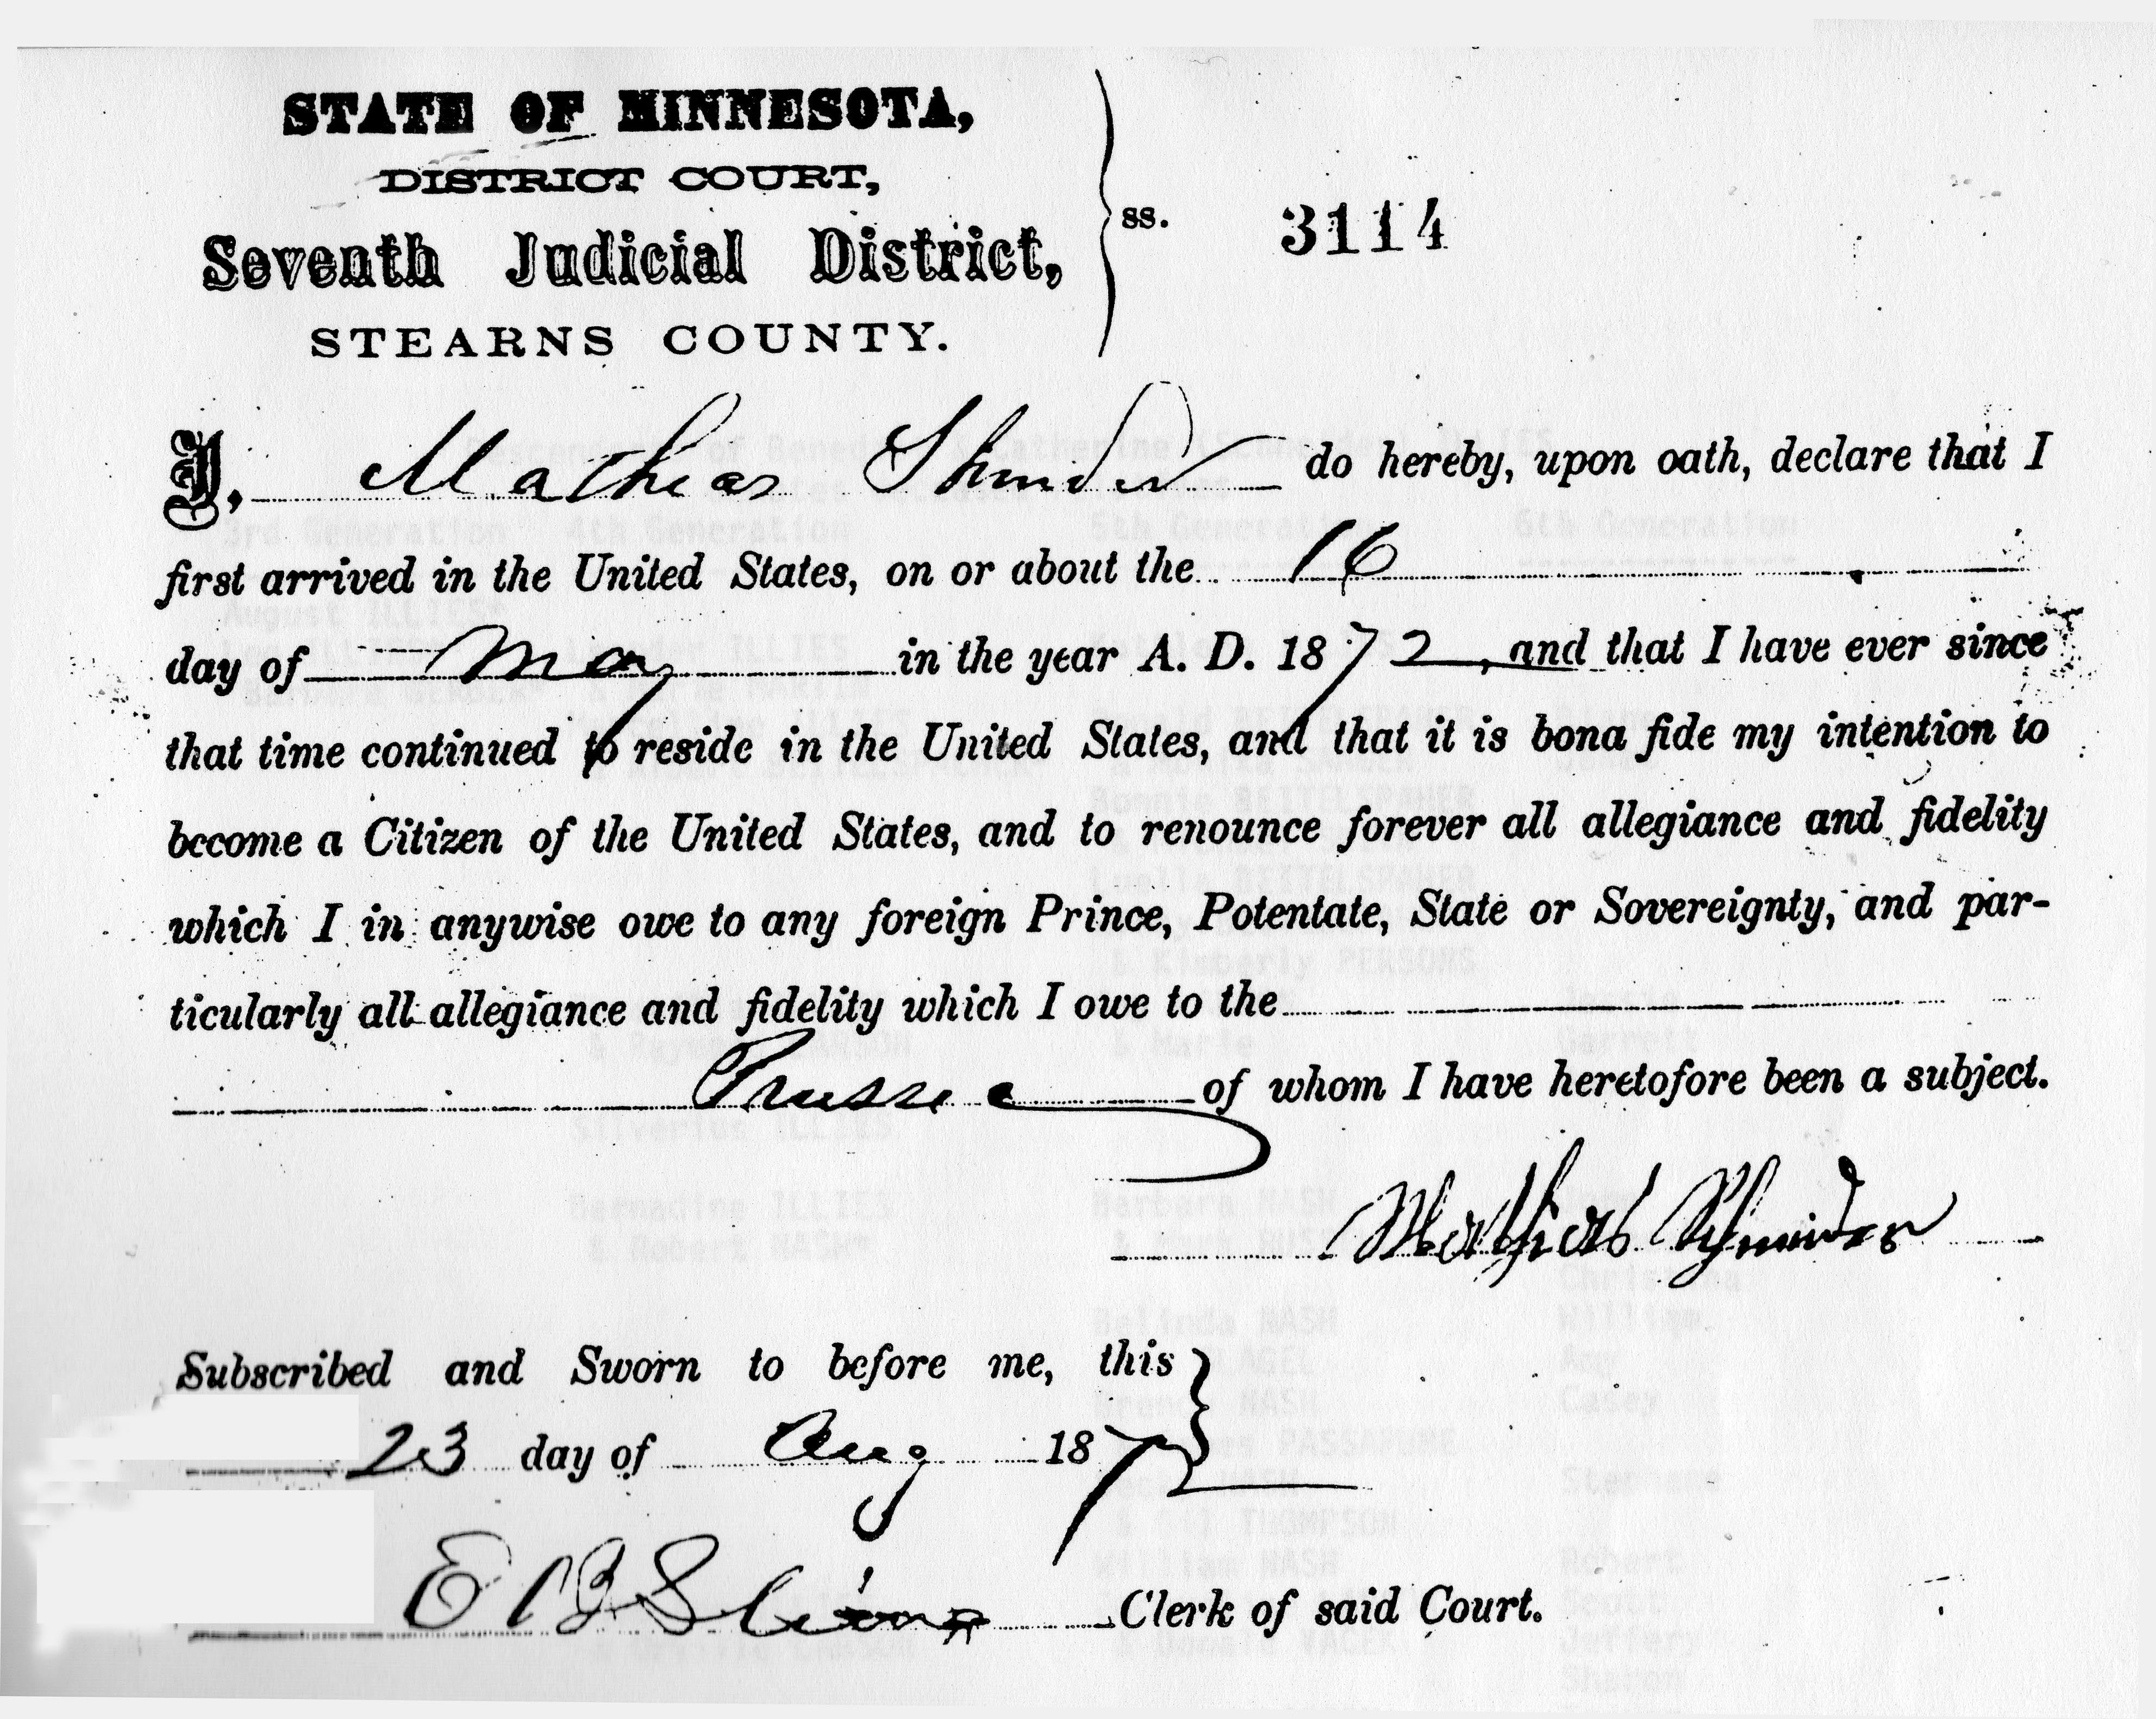 STATE OF MINNESOTA,
DISTRICT COURT,
Seventh Judicial District,
STEARNS COUNTY.
ss.
3114
I, Mathias Shnider do hereby, upon oath, declare that I
first arrived in the United States, on or about the 16
day of May in the year A. D. 1872, and that I have ever since
that time continued to reside in the United States, and that it is bona fide my intention to
become a Citizen of the United States, and to renounce forever all allegiance and fidelity
which I in anywise owe to any foreign Prince, Potentate, State or Sovereignty, and par-
ticularly all allegiance and fidelity which I owe to the
Prussia of whom I have heretofore been a subject.
Mathias Schneider
Subscribed and Sworn to before me, this
23 day of Aug 1872
E P B S Clerk of said Court.